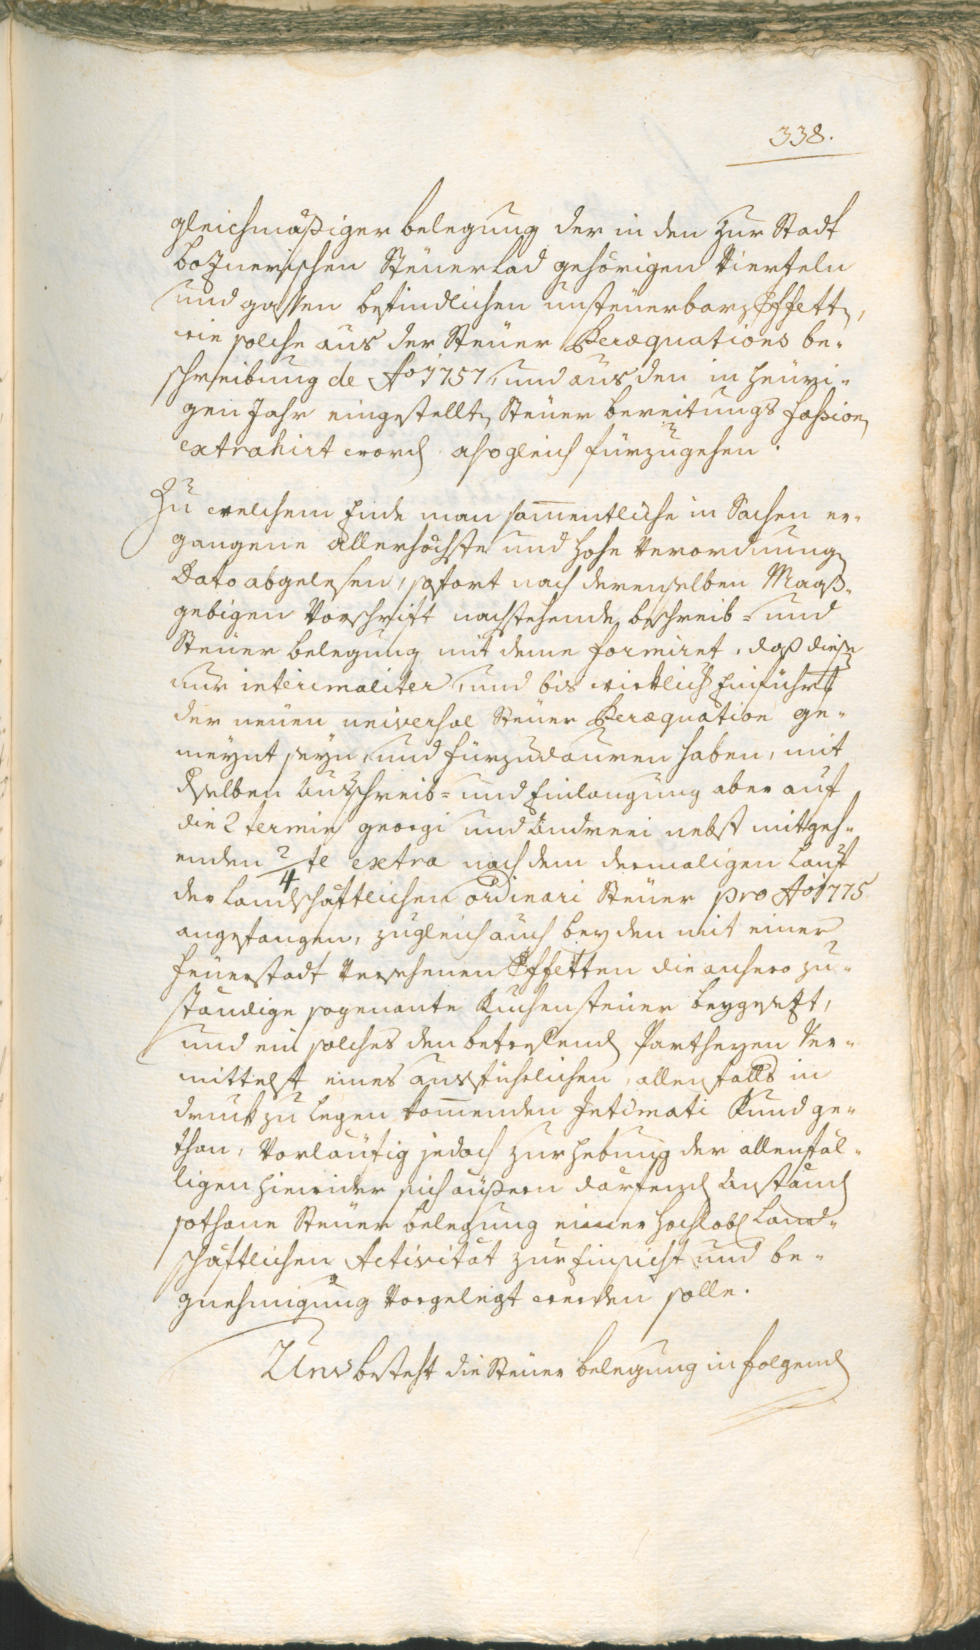 338.
gleichmäßiger belegung der in den zur Stadt
boznerischen Steuerlad gehörigen Vierteln
und gassen befindlichen unsteuerbarn Effettn,
wie solche aus der Steuer Peræquations be-
schreibung de Ao 1757, und aus den in heuri-
gen Jahr eingestelltn Steuer bereitungs Fassionen
extrahirt word. alsogleich fürzugehen.
Zu welchem Ende man sam̄entliche in Sachen er-
gangene allerhöchste und hohe Verordnungen
Dato abgelesen, sofort nach derenselben Maaß-
gebigen Vorschrift nachstehende beschreib- und
Steuer belegung mit deme formiret, daß diese
nur interimaliter, und bis wirklich Einführung
der neuen universal Steuer Peræquation ge-
meynt seyn, und fürzudauren haben, mit
dselben Ausschreib- und Einlangung aber auf
die 2 termin georgi und Andreei nebst mitgeh-
enden 2/4 te extra nach dem dermaligen Lauf
der Landschaftlichen ordinari Steuer pro Ao 1775
angefangen, zugleich auch bey den mit einer
Feuerstadt versehenen Effetten die anhero zu-
ständige sogenante Kuchensteuer beygesezt,
und ein solches den betreffend Partheyen ver-
mittelst eines ausführlichen, allenfalls in
druck zu legen kom̄enden Intimati Kund ge-
than, Vorläufig jedoch zur hebung der allenfäl-
ligen hierwider sich äußern darfend Anständ
sothane Steuer belegung einer hochlobl Land-
schaftlichen Activität zur Einsicht und be-
gnehmigung vorgelegt werden solle.
Uns besteht die Steuer belegung in folgend